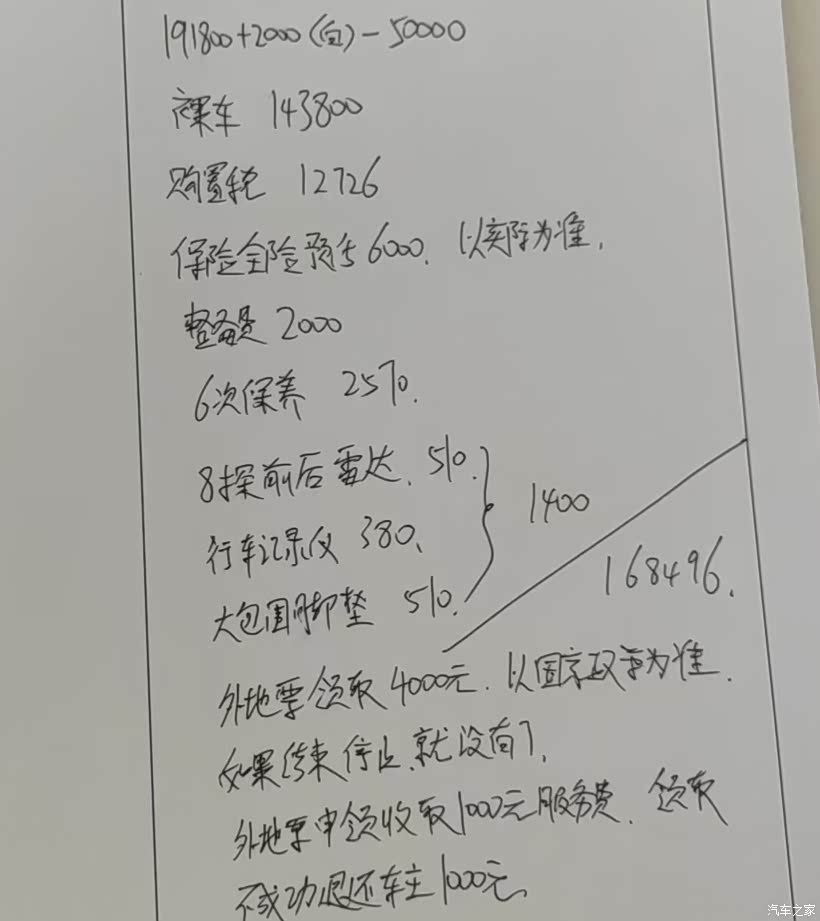 191800+2000(白)-50000
裸车 143800
购置税 12726
保险全险预估6000、以实际为准,
整备费 2000
6次保养 2570.
8探前后雷达、510.
行车记录仪 380、
1400
大包围脚垫 510.
168496.
外地票领取4000元、以国家政策为准.
如果结束停止、就没有了,
外地票申领收取1000元服务费、领取
不成功退还车主1000元、
汽车之家